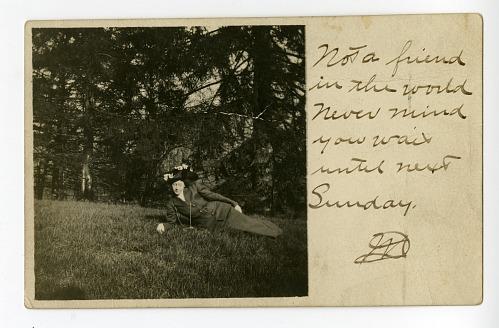 Not a friend
in the world
Never mind
you wait
until next
Sunday.